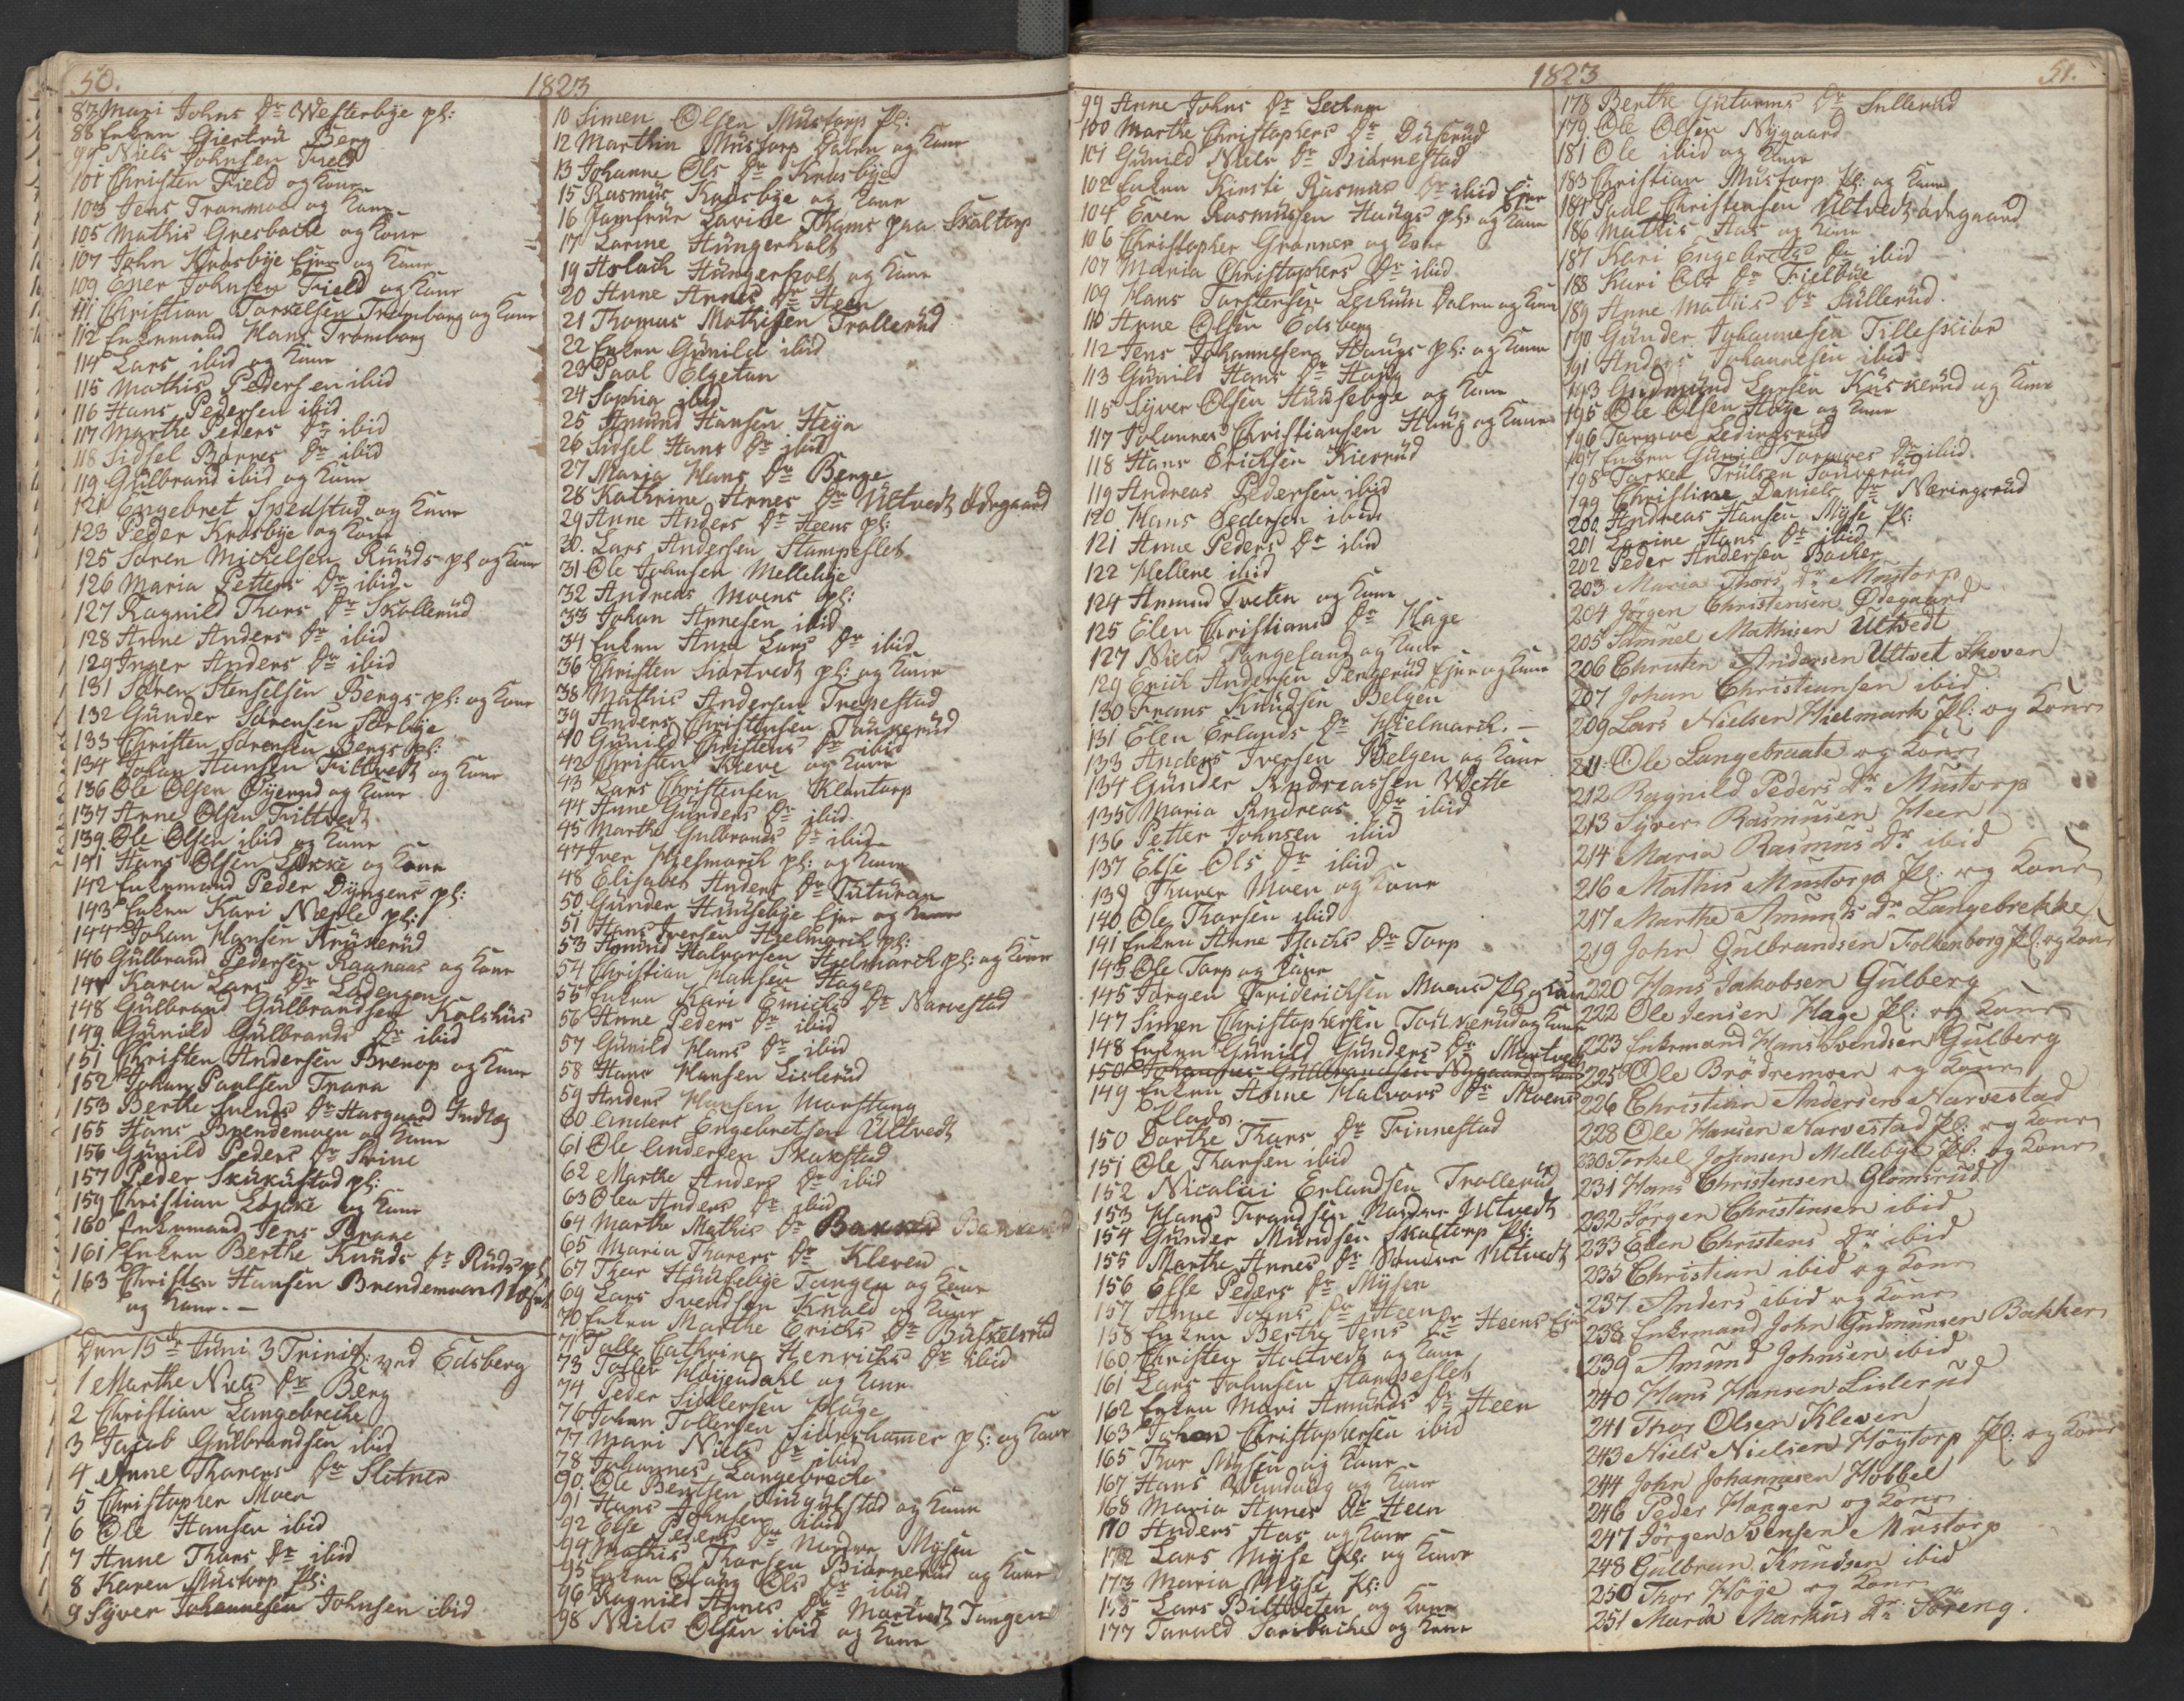 50.
1823
87 Mari Johns Dr Westerbye pl:
88 Enken Giertru Berg
99 Niels Johnsen Field
101 Christen Field og Kone
103 Jens Tranmoe og Kone
105 Mathis Gresbache og Kone
107 John Krosbye Ejer og Kone
109 Ener Johnsen Field og Kone
111 Christian Torkelsen Tromborg og Kone
112 Enkemand Hans Tromborg
114 Lars ibid og Kone
115 Mathis Pedersen ibid
116 Hans Pedersen ibid
117 Marthe Peders Dr ibid
118 Sidsel Barnes Dr ibid
119 Gulbrand ibid og Kone
121 Engebret Spedstad og Kone
123 Peder Krosbye og Kone
125 Søren Mickelsen Runds pl og Kone
126 Maria Petters Dr ibid
127 Ragnild Thors Dr Skollerud
128 Anne Anders Dr ibid
129 Inger Anders Dr ibid
131 Søren Stenselsen Bergs pl: og Kone
132 Gunder Sørensen Sørbye
133 Christen Sørensen Bergs pl:
134 Johan Hansen Tittvedt og Kone
136 Ole Olsen Øyerud og Kone
137 Anne Olsen Tittvedt
139 Ole Olsen ibid og Kone
141 Hans Olsen Løkke og Kone
142 Enkemand Peder Dyngens pl:
143 Enken Kari Næple pl:
144 Johan Hansen Kruserud
146 Gulbrand Pedersen Raanaas og Kone
147 Karen Lars Dr Ladengen
148 Gulbrand Gulbrandsen Kolshus
149 Gunild Gulbrands Dr ibid
151 Christen Andersen Brenop og Kone
152 Johan Paulsen Trana
153 Berthe Svends Dr Hasgaard Indlæg
155 Hans Brendemoen og Kone
156 Gunild Peders Dr Svine
157 Peder Skukustad pl:
159 Christian Løkke og Kone
160 Enkemand Jens Grane
161 Enken Berthe Knuds Dr Ruds pl
163 Christen Hansen Brendemoen
og Kone. —
Den 15de Juni 3 Trinit: ved Edsberg
1 Marthe Niels Dr Berg
2 Christian Langebreche
3 Jacob Gulbrandsen ibid
4 Anne Thorers Dr Sletner
5 Christopher Moen
6 Ole Hansen ibid
7 Anne Thors Dr ibid
8 Karen Mustorp Pl:
9 Syver Johannesen Johnsen ibid
10 Simen Olsen Mustorp Pl:
12 Marthin Mustorp Dalen og Kone
13 Johanne Ols Dr Krosbye
15 Rasmus Krosbye og Kone
16 Jomfrue Lovise Thams paa Skaltorp
17 Larine Hungerholt
19 Aslach Hungerholt og Kone
20 Anne Arnes Dr Heen
21 Thomas Mathisen Trollerud
22 Enken Gunild ibid
23 Paul Elgetun
24 Sophia ibid
25 Amund Hansen Heya
26 Sidsel Hans Dr ibid
27 Maria Hans Dr Berge
28 Kathrine Arnes Dr Ultvedt Ødegaard
29 Anne Anders Dr Heens pl:
30. Lars Andersen Stampeslet
31 Ole Johnsen Mellebye
32 Andreas Moens pl:
33 Johan Arnesen ibid
34 Enken Anne Lars Dr ibid
36 Christen Siortvedt pl: og Kone
38 Mathis Andersen Trepestad
39 Anders Christensen Taukerud
40 Gunild Christens Dr ibid
42 Christen Kleve og Kone
43 Lars Christensen Klontorp
44 Anne Gunders Dr ibid
45 Marthe Gulbrands Dr ibid
47 Iver Hielmarch pl: og Kone
48 Elisabet Anders Dr Tuturon
50 Gunder Huusebye Ejer og Kone
51 Hans Iversen Hielmarch pl:
53 Amund Halvorsen Hielmarch pl: og Kone
54 Christian Hansen Hage
55 Enken Kari Emichs Dr Narvestad
56 Anne Peders Dr ibid
57 Gunild Hans Dr ibid
58 Hans Hansen Lislerud
59 Anders Hansen Morstang
60 Anders Engebretsen Ultvedt
61 Ole Andersen Skakstad
62 Marthe Anders Dr ibid
63 Olea Anders Dr ibid
64 Marthe Mathis Dr
65 Maria Thorers Dr Kleven
67 Thor Huusebye Tangen og Kone
69 Lars Svendsen Knold og Kone
70 Enken Marthe Erichs Dr Buskelsrud
71 Talle Cathrine Henrichs Dr ibid
73 Tollef Høyendahl og Kone
74 Peder Sillersen Hage
76 Johan Tollersen Sidenhamer pl: og Kone
77 Mari Niels Dr ibid
78 Johannes Langebreche
90. Ole Bentsen Sukustad og Kone
91 Hans Johnsen ibid
92 Else Peders Dr Nordre Mysen
94 Mathis Thorsen Biørnerud og Kone
95 Enken Olaug Ols Dr ibid
96 Ragnild Arnes Dr Mortvedt Tangen
98 Niels Olsen ibid og Kone
1823
51.
99 Anne Johns Dr Lechum
100 Marthe Christophers Dr Duserud
101 Gunild Niels Dr Biørnestad
102 Enken Kirsti Rasmus Dr ibid Ejer
104 Even Rasmussen Haugs pl: og Kone
106 Christopher Grønner og Kone
107 Maria Christophers Dr ibid
109 Hans Torstensen Lechum Dalen og Kone
110 Anne Olsen Edsberg
112 Jens Johannesen Haugs pl: og Kone
113 Gunild Hans Dr Haug
115 Syver Olsen Huusebye og Kone
117 Johannes Christiansen Haug og Kone
118 Hans Erichsen Kierrud
119 Andreas Pedersen ibid
120 Hans Pedersen ibid
121 Anne Peders Dr ibid
122 Hellene ibid
124 Amund Tveten og Kone
125 Elen Christians Dr Hage
127 Niels Tangeland og Kone
129 Erich Andersen Pengerud Ejer og Kone
130 Frans Knudsen Belgen
131 Elen Erlands Dr Hielmarch. —
133 Anders Iversen Belgen og Kone
134 Gunder Andreassen Wette
135 Maria Andreas Dr ibid
136 Petter Johnsen ibid
137 Else Ols Dr ibid
139 Thorer Moen og Kone
140 Ole Thorsen ibid
141 Enken Anne Isachs Dr Torp
143 Ole Torp og Kone
145 Jørgen Friderichsen Moens Pl og Kone
147 Simen Christophersen Toilnerud og Kone
148 Enken Gunild Gunders Dr Mortvedt
150 Johannes Gulbrandsen Nygaard og Kone
149 Enken Anne Halvors Dr Moens
flads. —
150 Dorthe Thors Dr Finnestad
151 Ole Thorsen ibid
152 Nicolai Erlandsen Trollerud
153 Hans Frandsen Nordre Ultvedt
154 Gunder Mundsen Skaltorp Pl:
155 Marthe Arnes Dr Søndre Ultvedt
156 Else Peders Dr Mysen
157 Anne Johns Dr Heen
158 Enken Berthe Jens Dr Heens Ejer
160 Christen Holtvedt og Kone
161 Lars Johnsen Stampeslet
162 Enken Mari Amunds Dr Heen
163 Johan Christophersen ibid
165 Thor Mysen og Kone
167 Hans Wendaug og Kone
168 Maria Arnes Dr Heen
170 Anders Aas og Kone
172 Lars Myse Pl: og Kone
173 Maria Myse Pl:
175 Lars Bilitveten og Kone
177 Torvald Torribache og Kone
178 Berthe Gutorms Dr Sullerud
179 Ole Olsen Nygaard
181 Ole ibid og Kone
183 Christian Mustorp Pl: og Kone
184 Paul Christensen Ultvedt ødegaard
186 Mathis Aas og Kone
187 Kari Engebrets Dr ibid
188 Kari Ols Dr Fielbye
189 Anne Mathis Dr Skullerud.
190 Gunder Johannesen Tilleskiør
191 Anders Johannesen ibid
193 Gudmund Larsen Kuskerud og Kone
195 Ole Olsen Høye og Kone
196 Tormoe Ledingsrud
197 Enken Gunild Tormoes Dr ibid
198 Torkel Trulsen Tonnerud
199 Christine Daniels Dr Næringsrud
200 Andreas Hansen Myse Pl:
201 Larine Hans Dr ibid
202 Peder Andersen Bacher
203 Maria Thors Dr Mustorp
204 Jørgen Christensen Ødegaard
205 Samuel Mathisen Ultvedt
206 Christen Andersen Ultvet Skoven
207 Johan Christiansen ibid
209 Lars Nielsen Hielmark Pl: og Kone
211 Ole Langebraate og Kone
212 Ragnild Peders Dr Mustorp
213 Syver Rasmusen Heen
214 Maria Rasmus Dr ibid
216 Mathis Mustorp Pl: og Kone
217 Marthe Amunds Dr Langebrekke
219 John Gulbrandsen Folkenborg Pl: og Kone
220 Hans Jakobsen Gulberg
222 Ole Jensen Hage Pl: og Kone
223 Enkemand Hans Svendsen Gulberg
225 Ole Brødremoen og Kone
226 Christian Andersen Narvestad
228 Ole Hansen Narvestad Pl: og Kone
230 Torkel Johnsen Mellebye Pl: og Kone
231 Hans Christensen Glomsrud
232 Jørgen Christensen ibid
233 Elen Christens Dr ibid
235 Christian ibid og Kone
237 Anders ibid og Kone
238 Enkemand John Gudmunsen Bakker
239 Amund Johnsen ibid
240 Hans Hansen Lislerud
241 Thor Olsen Kleven
243 Niels Nielsen Høytorp Pl: og Kone
244 John Johannesen Hobbel
246 Peder Haugen og Kone
247 Jørgen Svensen Mustorp
248 Gulbran Knudsen ibid
250 Thor Høye og Kone
251 Maria Markus Dr Søreng.